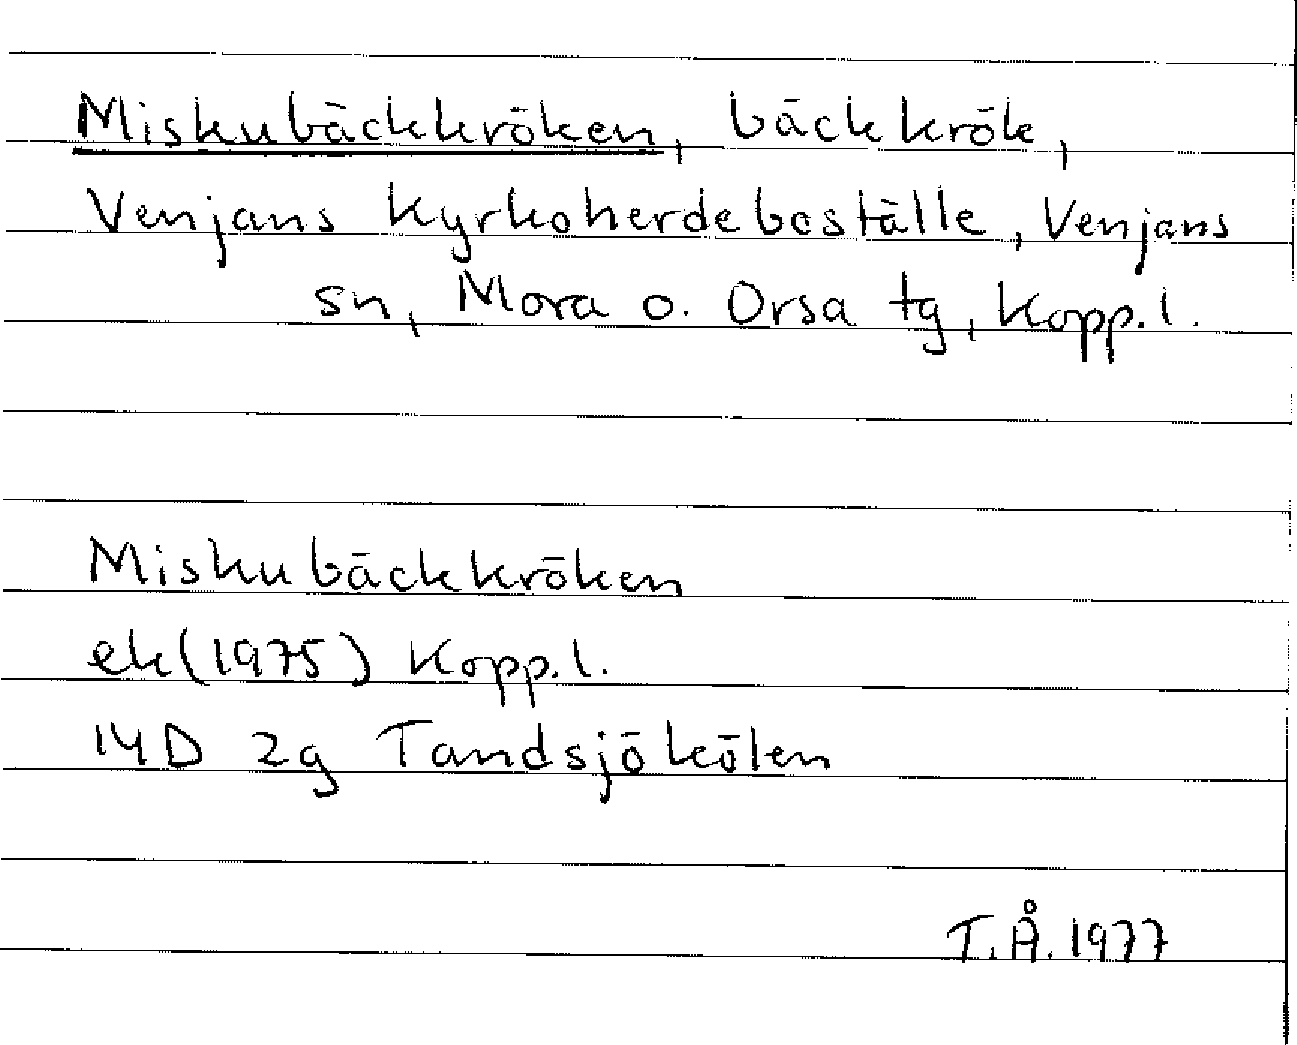 Miskubäckkröken, bäckkrök,
Venjans Kyrkoherdeboställe, Venjans
sn, Mora o. Orsa tg, Kopp. l.
Miskubäckkröken
ek (1975) Kopp. l.
14D 2g Tandsjökölen
T.Å. 1977